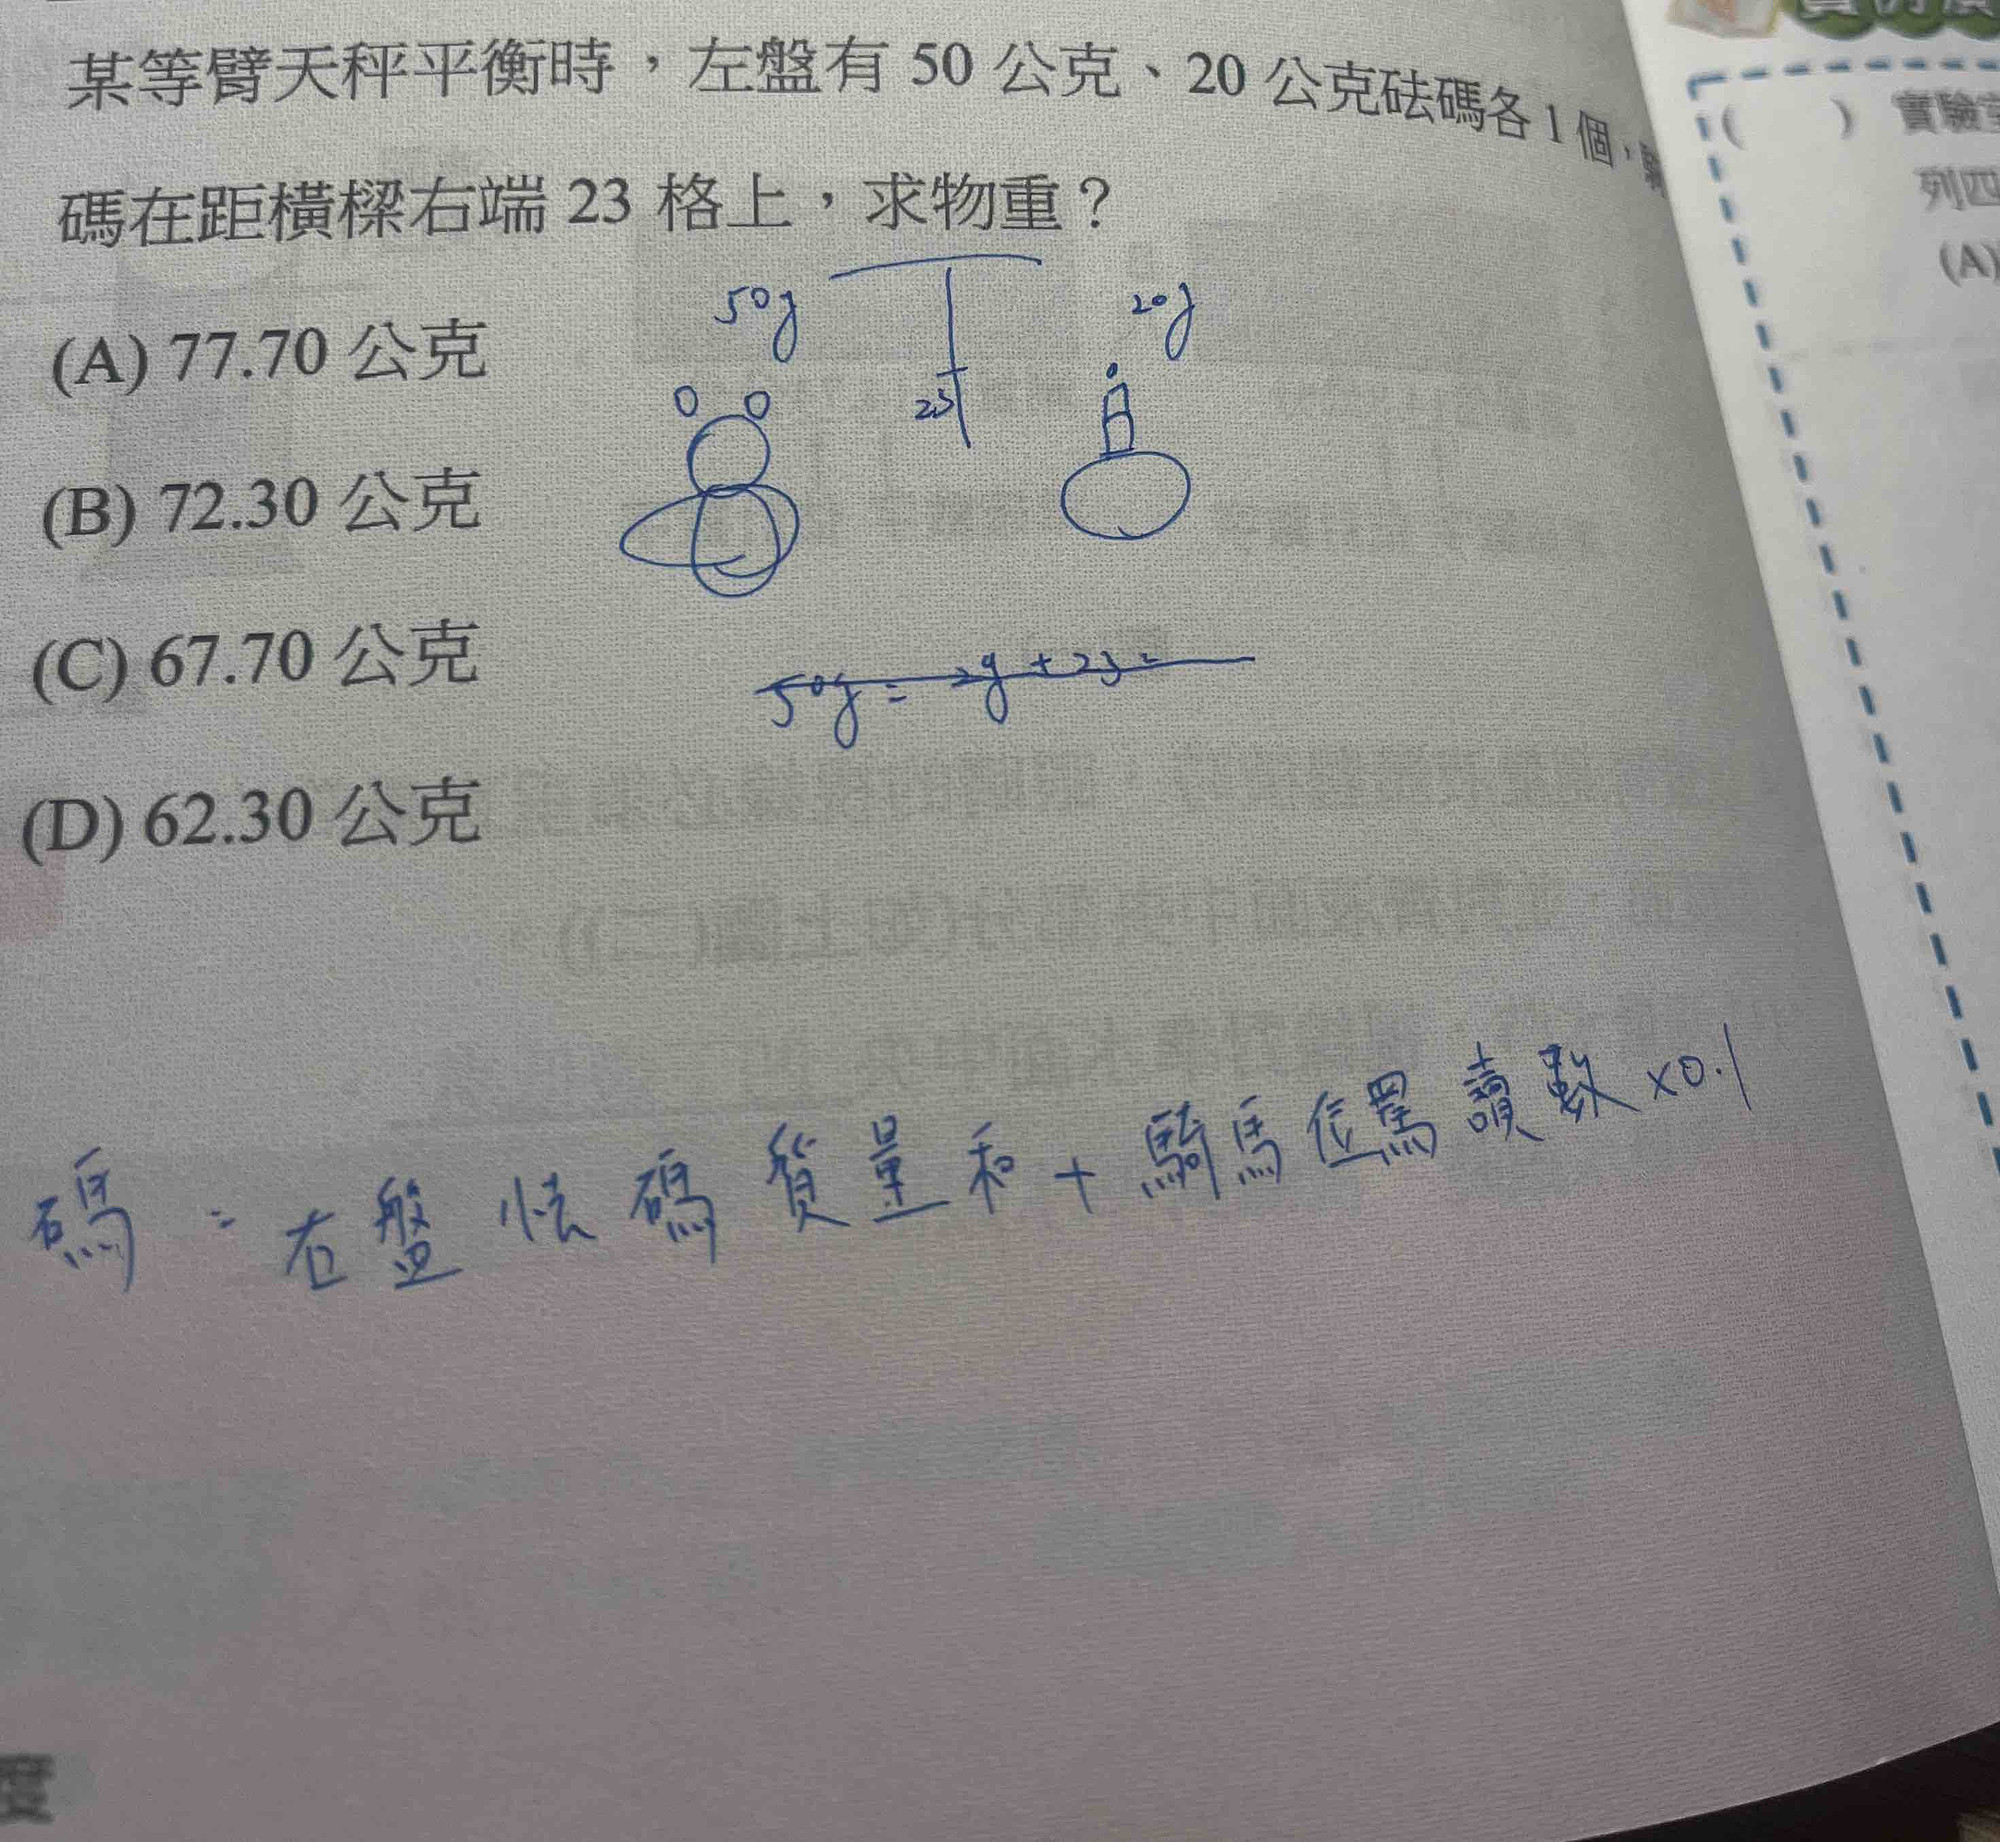 某等臂天秤平衡時，左盤有 50 公克、20 公克砝碼各 1 個，
碼在距橫樑右端 23 格上，求物重？
(A) 77.70 公克
(B) 72.30 公克
(C) 67.70 公克
(D) 62.30 公克
50g
20g
23
碼 = 右盤 砝碼質量和 + 騎馬位置讀數 ×0.1
( ) 實驗室
列四
(A)
度